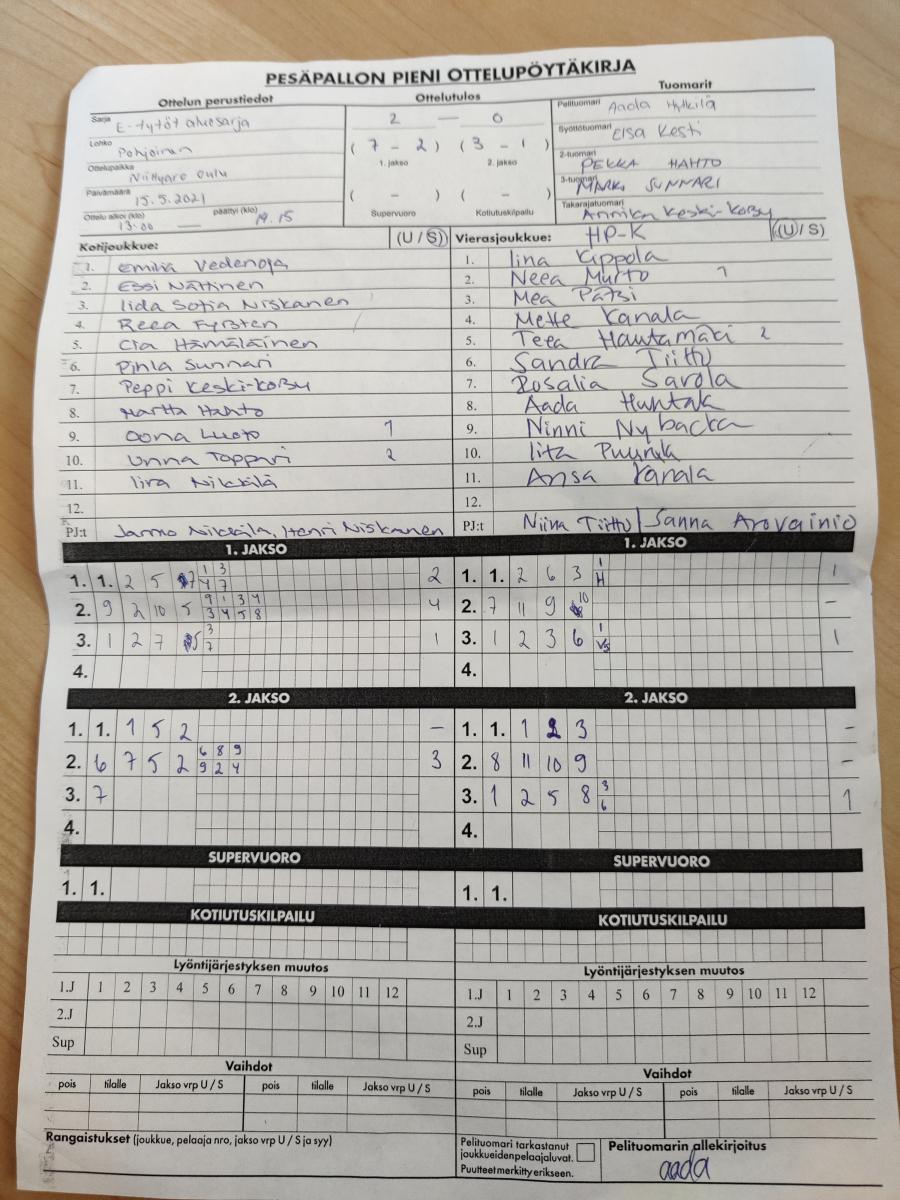 PESÄPALLON PIENI OTTELUPÖYTÄKIRJA
Ottelun perustiedot
Sarja E-tytöt aluesarja
Lohko Pohjoinen
Ottelupaikka Niittyaro Oulu
Päivämäärä 15.5.2021
Ottelu alkoi (klo) 13.00 — päättyi (klo) 14.15
Ottelutulos
2 — 0
( 7 - 2 ) ( 3 - 1 )
1. jakso 2. jakso
( - ) ( - )
Supervuoro Kotiutuskilpailu
Tuomarit
Pelituomari Aada Hylkilä
Syöttötuomari Elsa Kesti
2-tuomari PEKKA HAHTO
3-tuomari MARKO SUNNARI
Takarajatuomari Annika Keski-Koby
Kotijoukkue: (U / S)
1. Emilia Vedenoja
2. Essi Nättinen
3. Iida Sofia Niskanen
4. Reea Fyrsten
5. Cia Hämäläinen
6. Pihla Sunnari
7. Peppi Keski-Koby
8. Martta Hahto
9. Oona Luoto 1
10. Unna Toppari 2
11. Iira Nikkilä
12.
PJ:t Jarmo Nikkilä, Henri Niskanen
Vierasjoukkue: HP-K (U / S)
1. Iina Kippola
2. Neea Murto 1
3. Mea Pätsi
4. Mette Kanala
5. Teea Hautamäki 2
6. Sandra Tiittu
7. Rosalia Sarola
8. Aada Huntak
9. Ninni Nybacka
10. Iita Puurula
11. Ansa Kanala
12.
PJ:t Niina Tiittu / Sanna Arovainio
1. JAKSO
1. 1. 2 5 7 1 3 2
4 7
2. 9 2 10 5 9 1 3 4 4
3 4 5 8
3. 1 2 7 5 3 1
7
4.
1. JAKSO
1. 1. 2 6 3 1 1
H
2. 7 11 9 10 -
3. 1 2 3 6 1 1
V3
4.
2. JAKSO
1. 1. 1 5 2 -
2. 6 7 5 2 6 8 9 3
9 2 4
3. 7
4.
2. JAKSO
1. 1. 1 2 3 -
2. 8 11 10 9 -
3. 1 2 5 8 3 1
6
4.
SUPERVUORO
1. 1.
SUPERVUORO
1. 1.
KOTIUTUSKILPAILU
KOTIUTUSKILPAILU
Lyöntijärjestyksen muutos
1.J 1 2 3 4 5 6 7 8 9 10 11 12
2.J
Sup
Lyöntijärjestyksen muutos
1.J 1 2 3 4 5 6 7 8 9 10 11 12
2.J
Sup
Vaihdot
pois tilalle Jakso vrp U / S pois tilalle Jakso vrp U / S
Vaihdot
pois tilalle Jakso vrp U / S pois tilalle Jakso vrp U / S
Rangaistukset (joukkue, pelaaja nro, jakso vrp U / S ja syy)
Pelituomari tarkastanut
joukkueidenpelaajaluvat.
Puutteet merkitty erikseen.
Pelituomarin allekirjoitus
aada